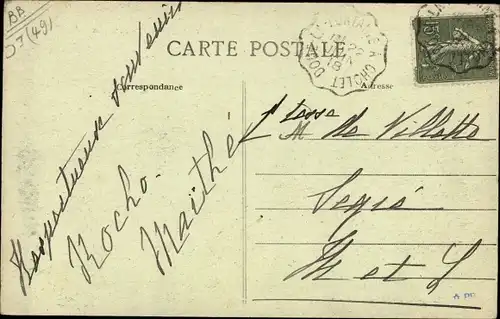 BB
D7 (49)
CARTE POSTALE
Correspondance
Adresse
CHOLET
15c
Respectueux souvenirs
Rocho.
Maïthé
Ctesse
de Villette
Segré
M et L